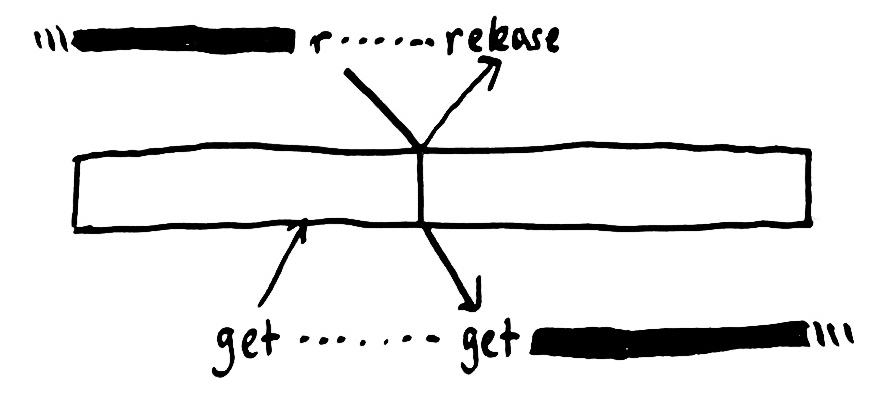 r ...... release
get ....... get